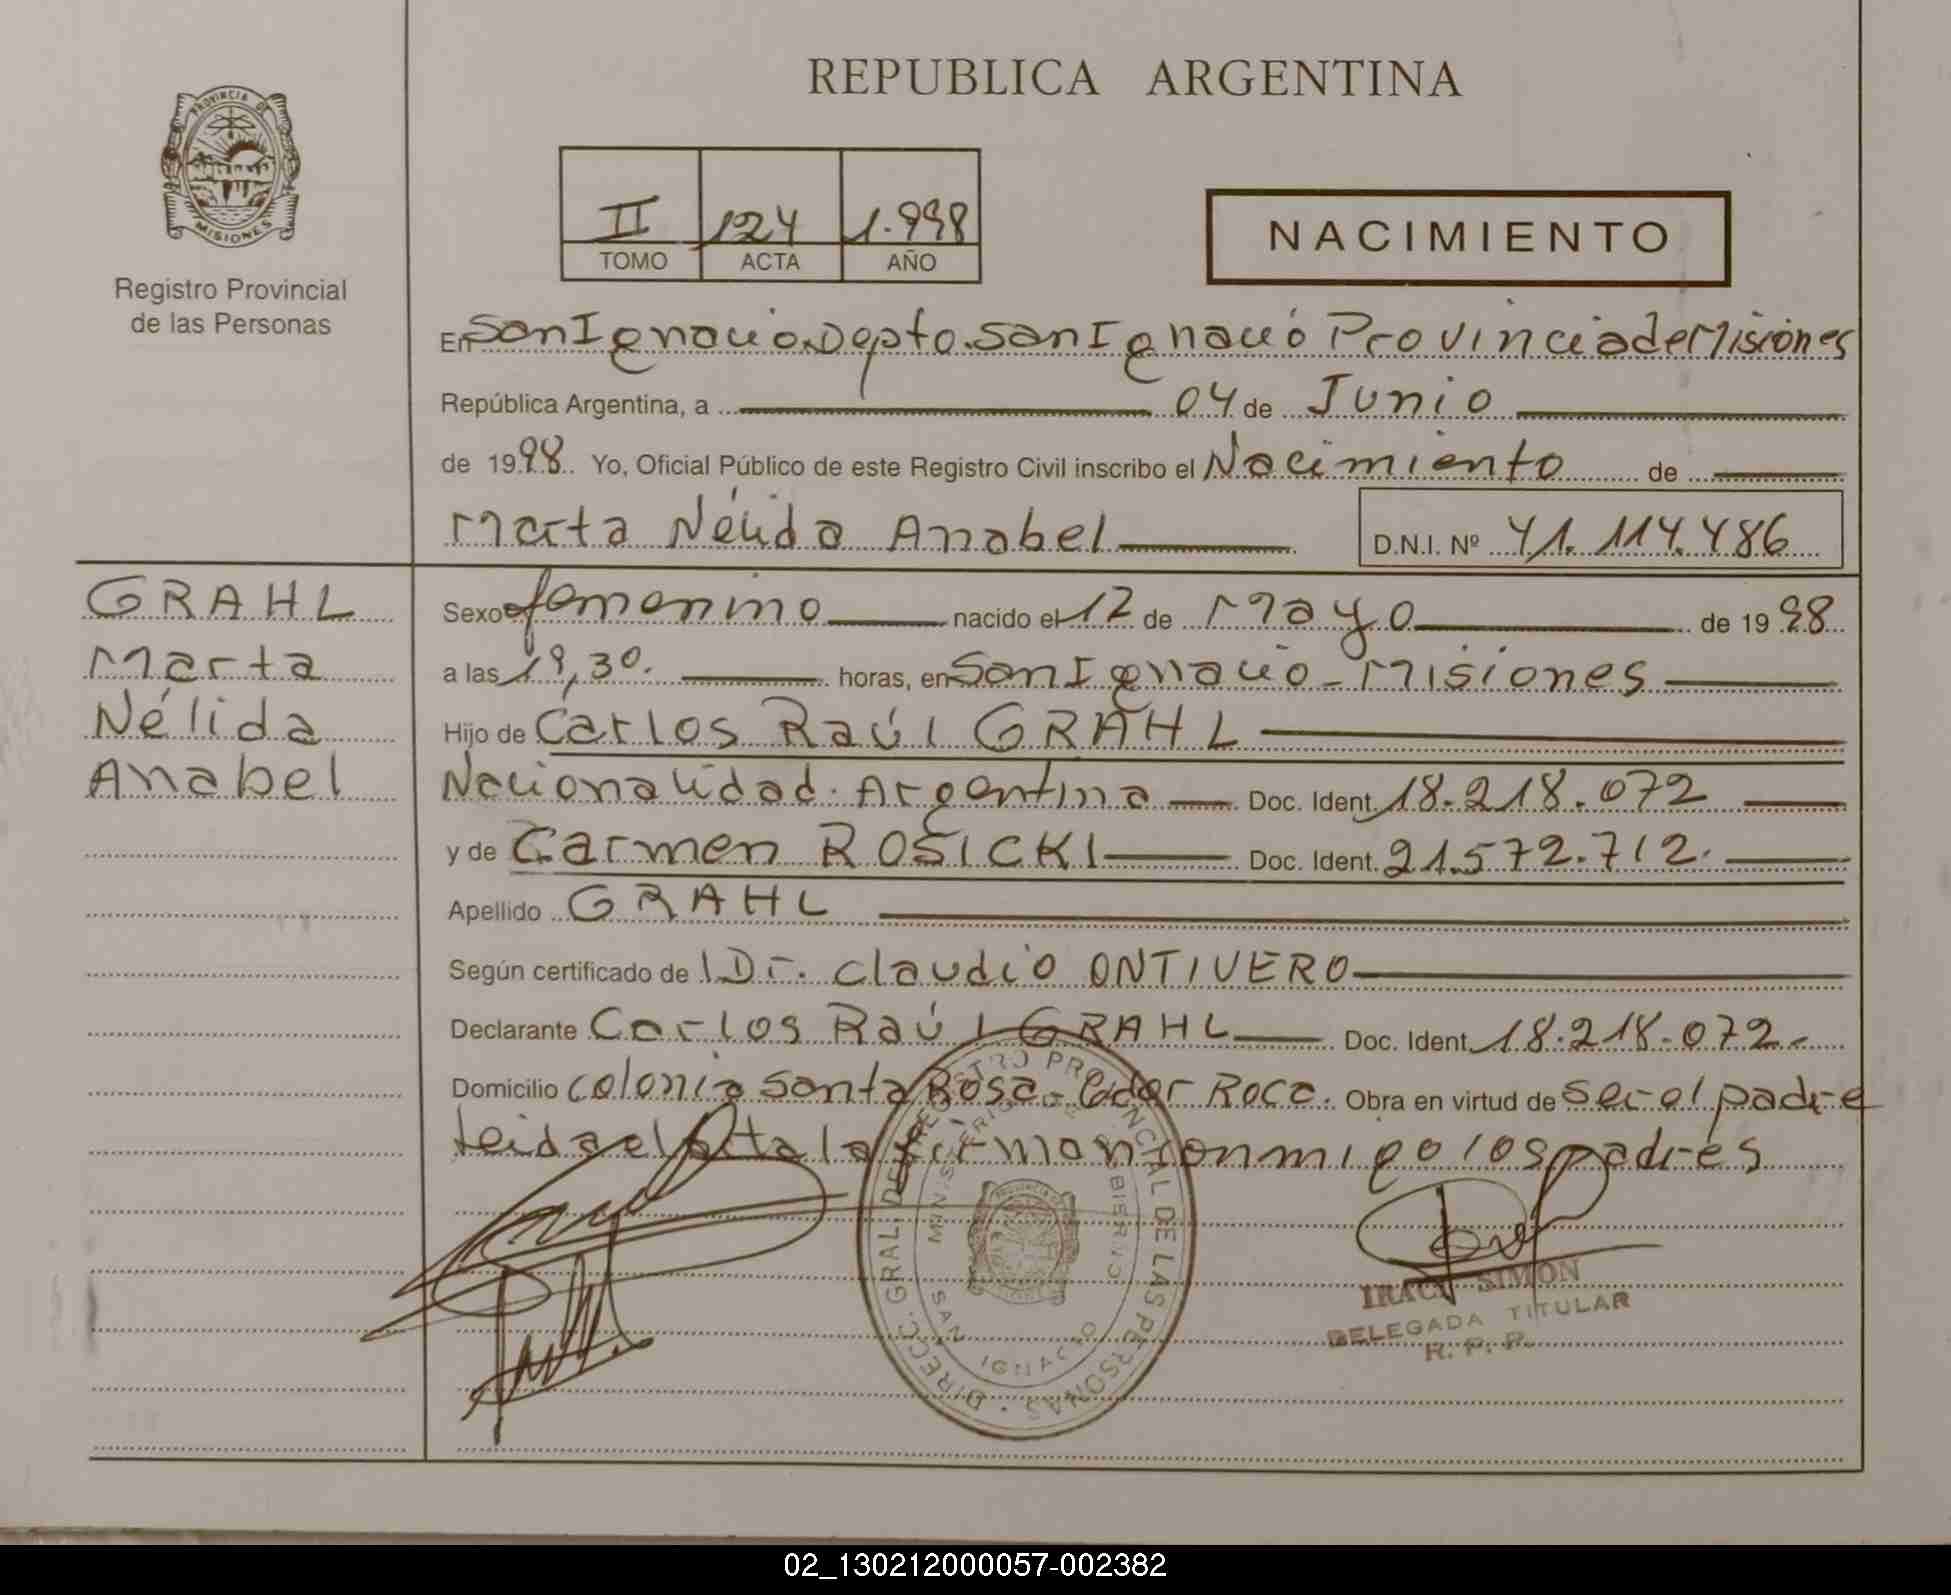 REPUBLICA ARGENTINA
PROVINCIA DE
MISIONES
Registro Provincial
de las Personas
II 124 1.998
TOMO ACTA AÑO
NACIMIENTO
En San Ignacio. Depto. San Ignacio Provincia de Misiones
República Argentina, a 04 de Junio
de 1998. Yo, Oficial Público de este Registro Civil inscribo el Nacimiento de
Marta Nélida Anabel
D.N.I. Nº 41.114.486
GRAHL
Marta
Nélida
Anabel
Sexo femenino nacido el 12 de Mayo de 1998
a las 19,30. horas, en San Ignacio - Misiones
Hijo de Carlos Raúl GRAHL
Nacionalidad. Argentina Doc. Ident. 18.218.072
y de Carmen ROSICKI Doc. Ident. 21.572.712.
Apellido GRAHL
Según certificado de l Dr. Claudio ONTIVERO
Declarante Carlos Raúl GRAHL Doc. Ident. 18.218.072.-
Domicilio Colonia Santa Rosa - Gdor Roca. Obra en virtud de ser el padre
Leida el Acta la firman conmigo los padres
DIRECC. GRAL. DEL REGISTRO PROVINCIAL DE LAS PERSONAS
MINISTERIO DE GOBIERNO
SAN IGNACIO
IRACI SIMON
DELEGADA TITULAR
R. P. P.
02_130212000057-002382